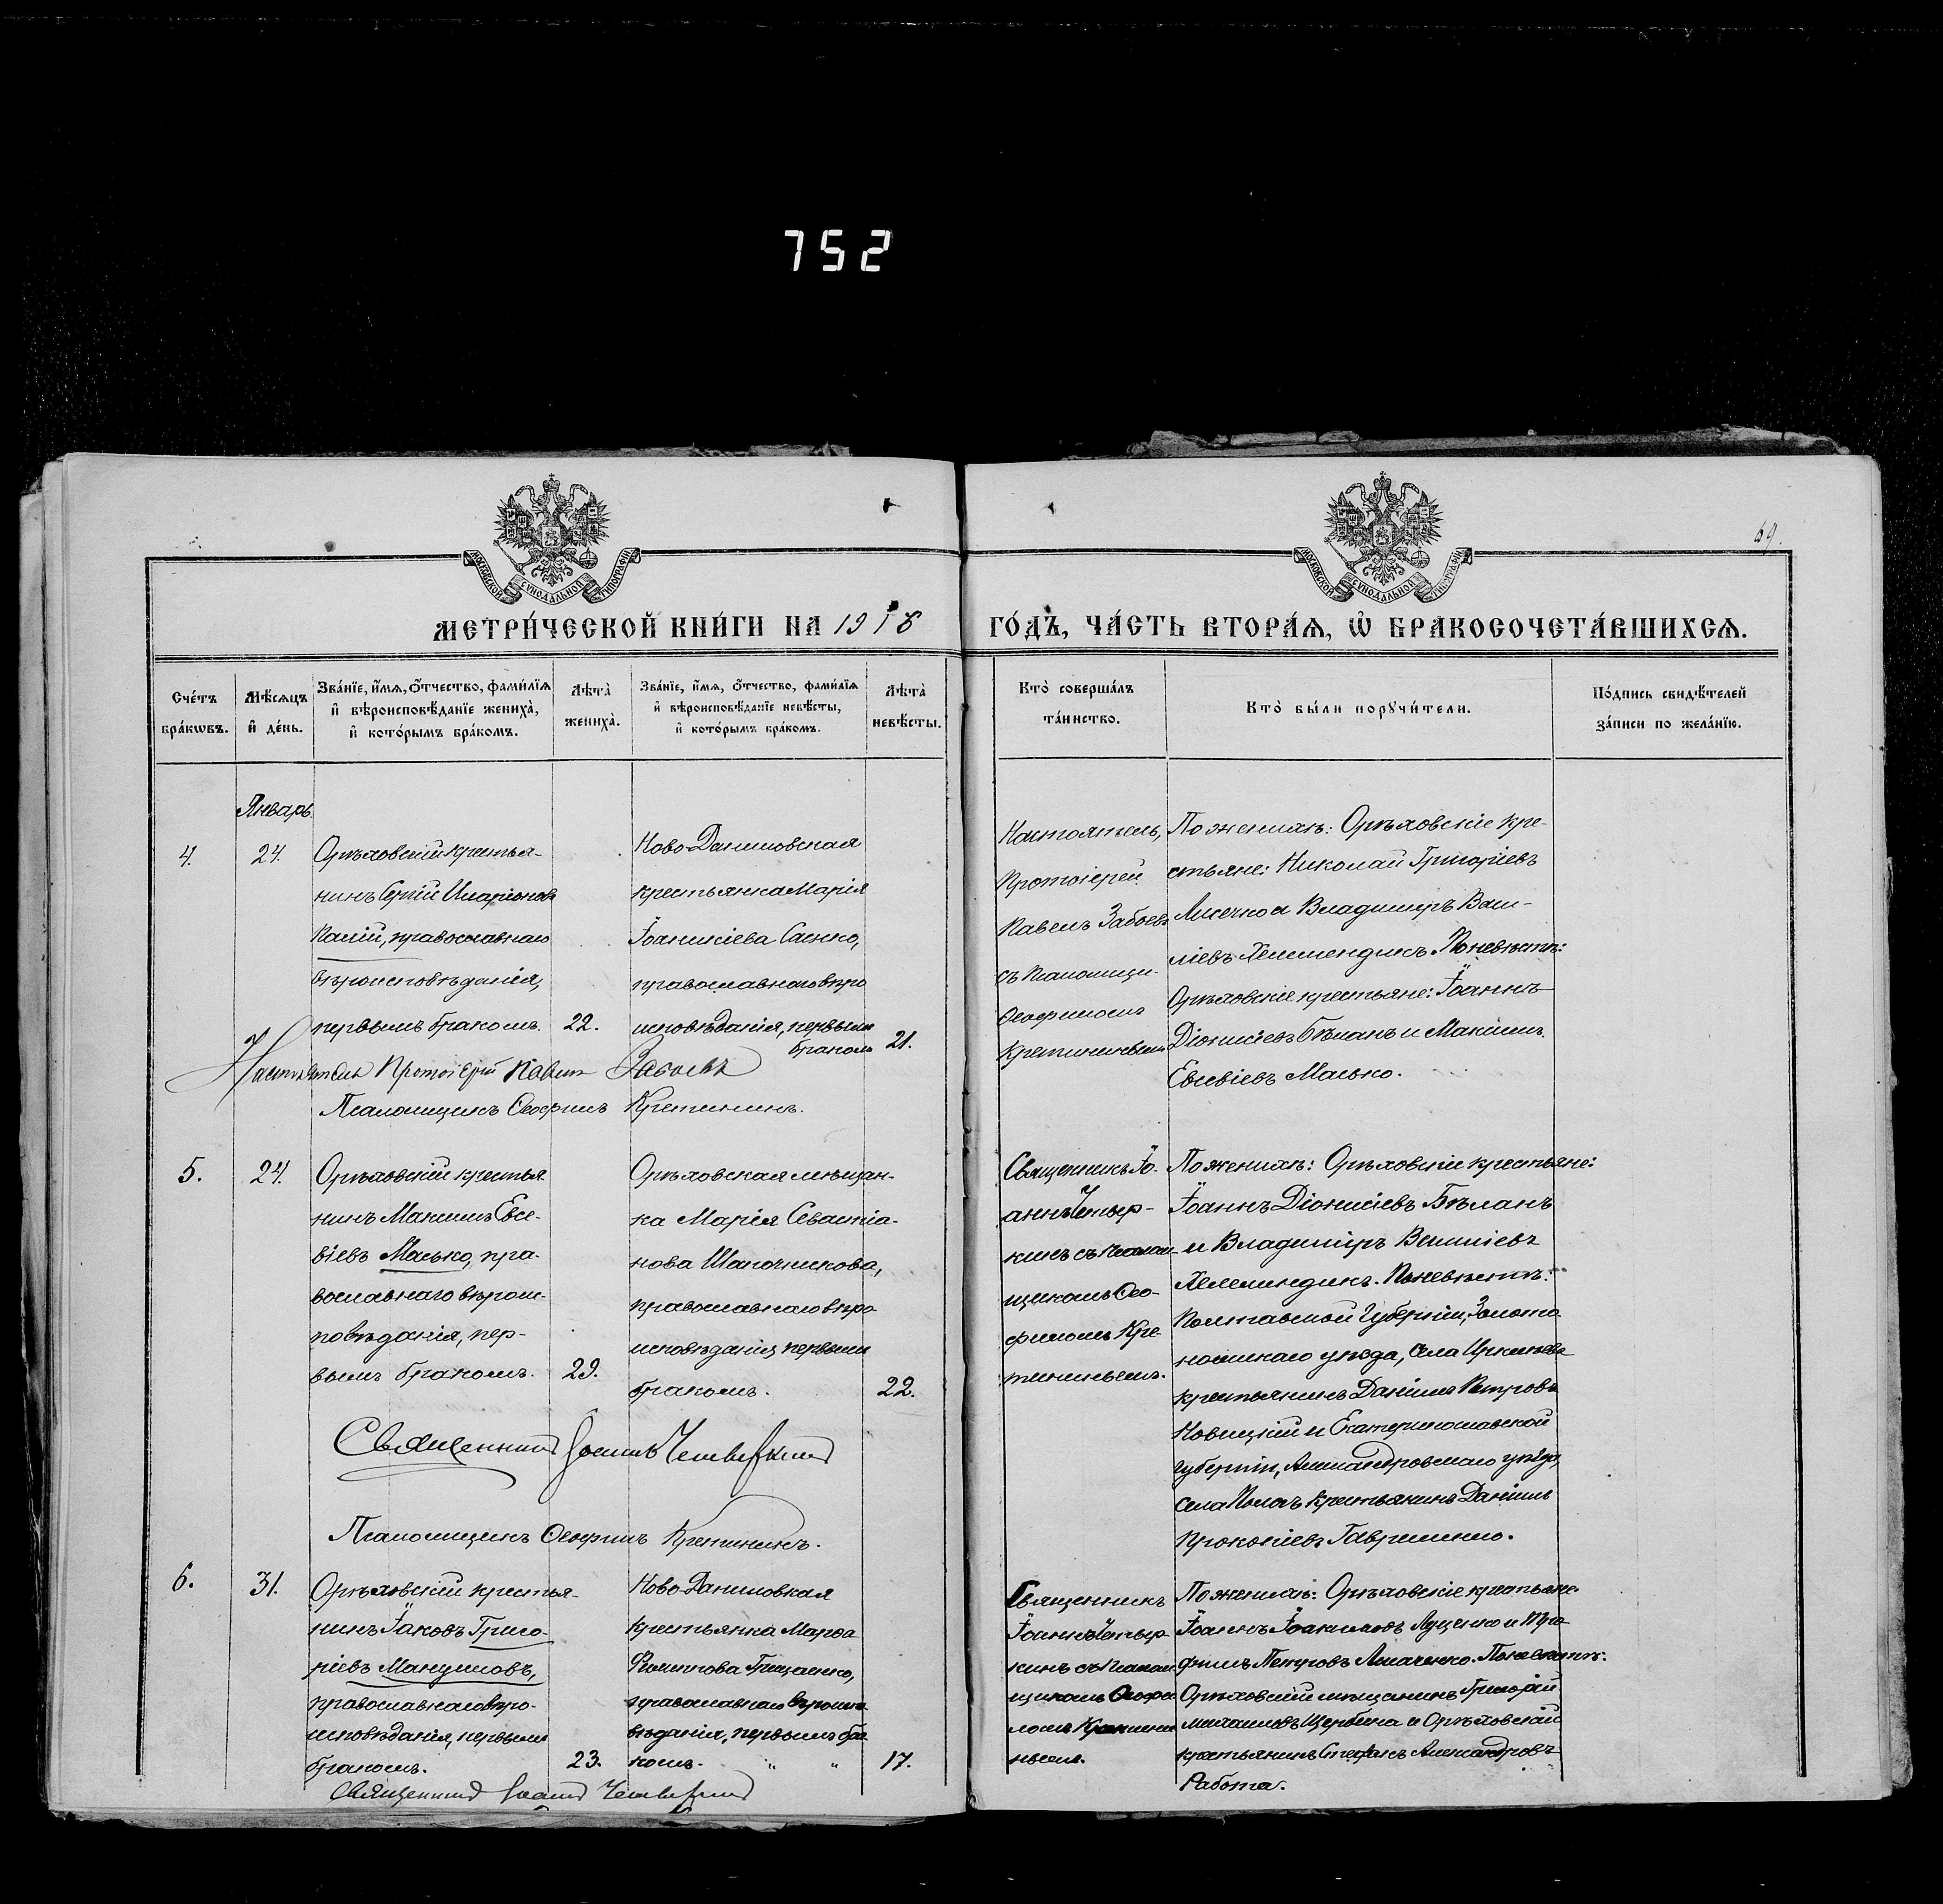 752
69.
МОСКОВСКОЙ СУНОДАЛЬНОЙ ТИПОГРАФІИ
МОСКОВСКОЙ СУНОДАЛЬНОЙ ТИПОГРАФІИ
МЕТРИ́ЧЕСКОЙ КНИ́ГИ НА 1918
ГО́ДЪ, ЧА́СТЬ ВТОРА́Ѧ, Ѽ БРАКОСОЧЕТА́ВШИХСѦ.
Сче́тъ бра́кωвъ.
Мѣ́сѧцъ и҆ де́нь.
Зва́нїе, и҆́мѧ, ѻ҆́тчество, фами́лїѧ
и҆ вѣроисповѣ́данїе жениха̀,
и҆ кото́рымъ бра́комъ.
Лѣта̀ жениха̀.
Зва́нїе, и҆́мѧ, ѻ҆́тчество, фами́лїѧ
и҆ вѣроисповѣ́данїе невѣ́сты,
и҆ кото́рымъ бра́комъ.
Лѣта̀ невѣ́сты.
Кто̀ соверша́лъ
та́инство.
Кто̀ бы́ли порꙋчи́тели.
По́дпись свидѣ́телей
за́писи по жела́нїю.
Январь.
4.
24.
Орѣховскій крестья-
нинъ Сергій Иларіоновъ
Палій, православнаго
вѣроисповѣданія,
первымъ бракомъ.
22.
Ново-Даниловская
крестьянка Марія
Іоанникіева Саенко,
православнаго вѣро
исповѣданія, первымъ
бракомъ
21.
Настоятель,
Протоіерей
Павелъ Забоевъ
съ псаломщи-
Ѳеофиломъ
Кретининымъ
По женихѣ: Орѣховскіе кре-
стьяне: Николай Григоріевъ
и Владиміръ Васи-
ліевъ Хелемендикъ. По невѣстѣ:
Орѣховскіе крестьяне: Іоаннъ
Діонисіевъ Бѣланъ и Максимъ
Евсевіевъ Масько.
Настоятель Протоіерей Павелъ Забоевъ
Псаломщикъ Ѳеофилъ Кретининъ.
5.
24.
Орѣховскій крестья
нинъ Максимъ Евсе-
віевъ Масько, пра-
вославнаго вѣроис-
повѣданія, пер-
вымъ бракомъ.
29.
Орѣховская мѣщан-
ка Марія Севастіа-
нова Шапочникова,
православнаго вѣро
исповѣданія, первымъ
бракомъ.
22.
Священникъ Іо-
аннъ Четвер-
кинъ съ псалом-
щикомъ Ѳео-
филомъ Кре-
тининымъ.
По женихѣ: Орѣховскіе крестьяне:
Іоаннъ Діонисіевъ Бѣланъ
и Владиміръ Василіевъ
Хелемендикъ. По невѣстѣ:
Полтавской губерніи, Золото
ношскаго уѣзда, села
крестьянинъ Даніилъ Петровъ
Новицкій и Екатеринославской
губерніи, Александровскаго уѣзда,
села Пологъ крестьянинъ Даніилъ
Прокопіевъ Гавриленко.
Священникъ Іоаннъ Четверкинъ
Псаломщикъ Ѳеофилъ Кретининъ.
6.
31.
Орѣховскій крестья-
нинъ Іаковъ Григо-
ріевъ Мануиловъ,
православнаго вѣро-
исповѣданія, первымъ
бракомъ.
23.
Ново-Даниловкая
крестьянка Марѳа
Филиппова Грицаенко,
православнаго вѣроиспо
вѣданія, первымъ бра
комъ. " "
17.
Священникъ
Іоаннъ Четвер-
кинъ съ псалом
щикомъ Ѳеофи
ломъ Кретини
нымъ.
По женихѣ: Орѣховскіе крестьяне
Іоаннъ Іоакимовъ Луценко и
Петровъ. По невѣстѣ:
Орѣховскій мѣщанинъ Григорій
Михаиловъ Щербина и Орѣховскій
крестьянинъ Стефанъ Александровъ
Работа.
Священникъ Іоаннъ Четверкинъ